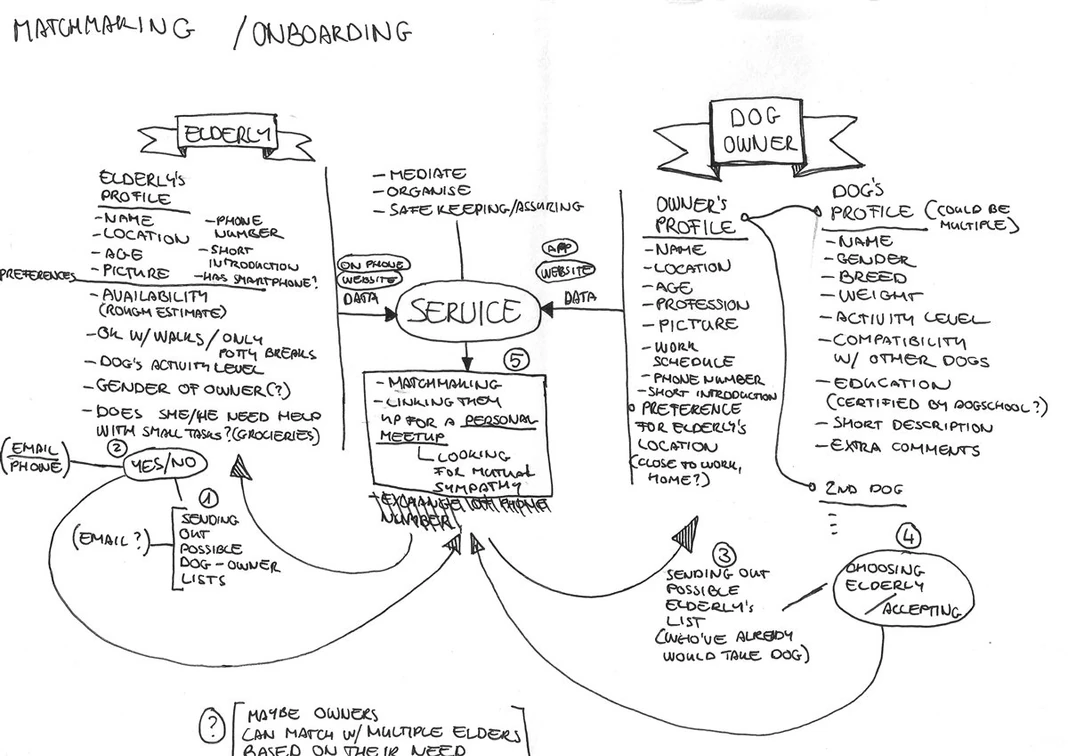 MATCHMAKING /ONBOARDING
ELDERLY
ELDERLY'S
PROFILE
- NAME
- LOCATION
- AGE
- PICTURE
- PHONE
NUMBER
- SHORT
INTRODUCTION
- HAS SMARTPHONE?
PREFERENCES
- AVAILABILITY
(ROUGH ESTIMATE)
- OK W/ WALKS / ONLY
POTTY BREAKS
- DOG'S ACTIVITY LEVEL
- GENDER OF OWNER(?)
- DOES SHE/HE NEED HELP
WITH SMALL TASKS? (GROCIERIES)
(EMAIL
/PHONE)
2
YES/NO
1
(EMAIL?)
SENDING
OUT
POSSIBLE
DOG-OWNER
LISTS
- MEDIATE
- ORGANISE
- SAFE KEEPING/ASSURING
ON PHONE
WEBSITE
DATA
SERVICE
APP
WEBSITE
DATA
5
- MATCHMAKING
- LINKING THEM
UP FOR A PERSONAL
MEETUP
LOOKING
FOR MUTUAL
SYMPATHY
NUMBER
DOG
OWNER
OWNER'S
PROFILE
- NAME
- LOCATION
- AGE
- PROFESSION
- PICTURE
- WORK
SCHEDULE
- PHONE NUMBER
- SHORT INTRODUCTION
PREFERENCE
FOR ELDERLY'S
LOCATION
(CLOSE TO WORK,
HOME?)
DOG'S
PROFILE (COULD BE
MULTIPLE)
- NAME
- GENDER
- BREED
- WEIGHT
- ACTIVITY LEVEL
- COMPATIBILITY
W/ OTHER DOGS
- EDUCATION
(CERTIFIED BY DOGSCHOOL?)
- SHORT DESCRIPTION
- EXTRA COMMENTS
2ND DOG
3
SENDING OUT
POSSIBLE
ELDERLY'S
LIST
(WHO'VE ALREADY
WOULD TAKE DOG)
4
CHOOSING
ELDERLY
/ACCEPTING
?
MAYBE OWNERS
CAN MATCH W/ MULTIPLE ELDERS
BASED ON THEIR NEED